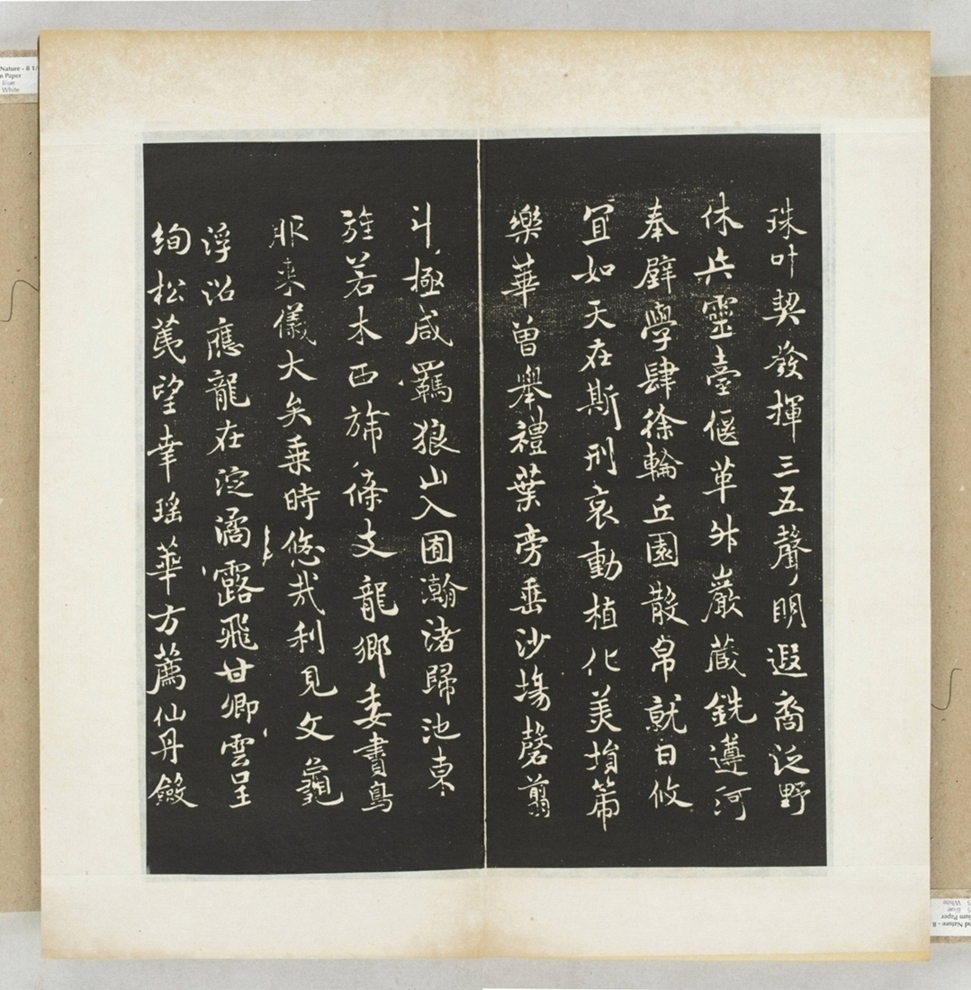 珠叶契發揮三五聲明遐裔泛野
休兵靈臺偃革舛巖蔵銑遵河
奉璧學肆徐輪丘園散帛就日攸
宜如天在斯刑哀動植化美塤箎
樂華曾舉禮葉旁垂沙塲罄翦
斗極咸羈狼山入囿瀚渚歸池東
旌若木西旆條支龍鄉委賮鳥
服来儀大矣乗時悠哉利見文龜
浮沼應龍在淀潏露飛甘卿雲呈
絢松荑望幸瑶華方薦仙丹斂
Nature - 8 1/
n Paper
Blue
White